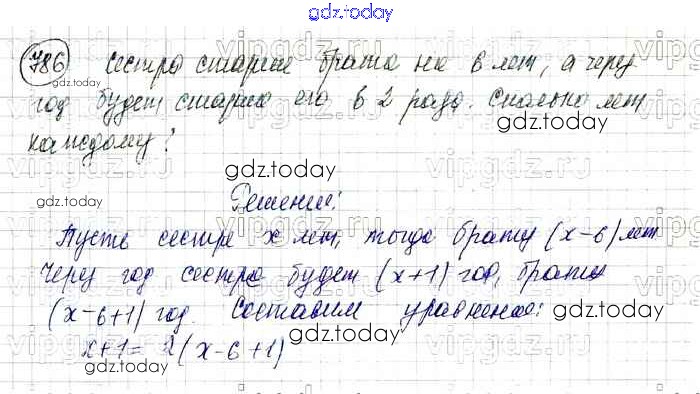 gdz.today
786 Сестра старше брата на 6 лет, а через
год будет старше его в 2 раза. Сколько лет
каждому?
Решение:
Пусть сестре x лет, тогда брату (x-6) лет
Через год сестре будет (x+1) год, брату
(x-6+1) год. Составим уравнение:
x+1=2(x-6+1)
vipgdz.ru
gdz.today